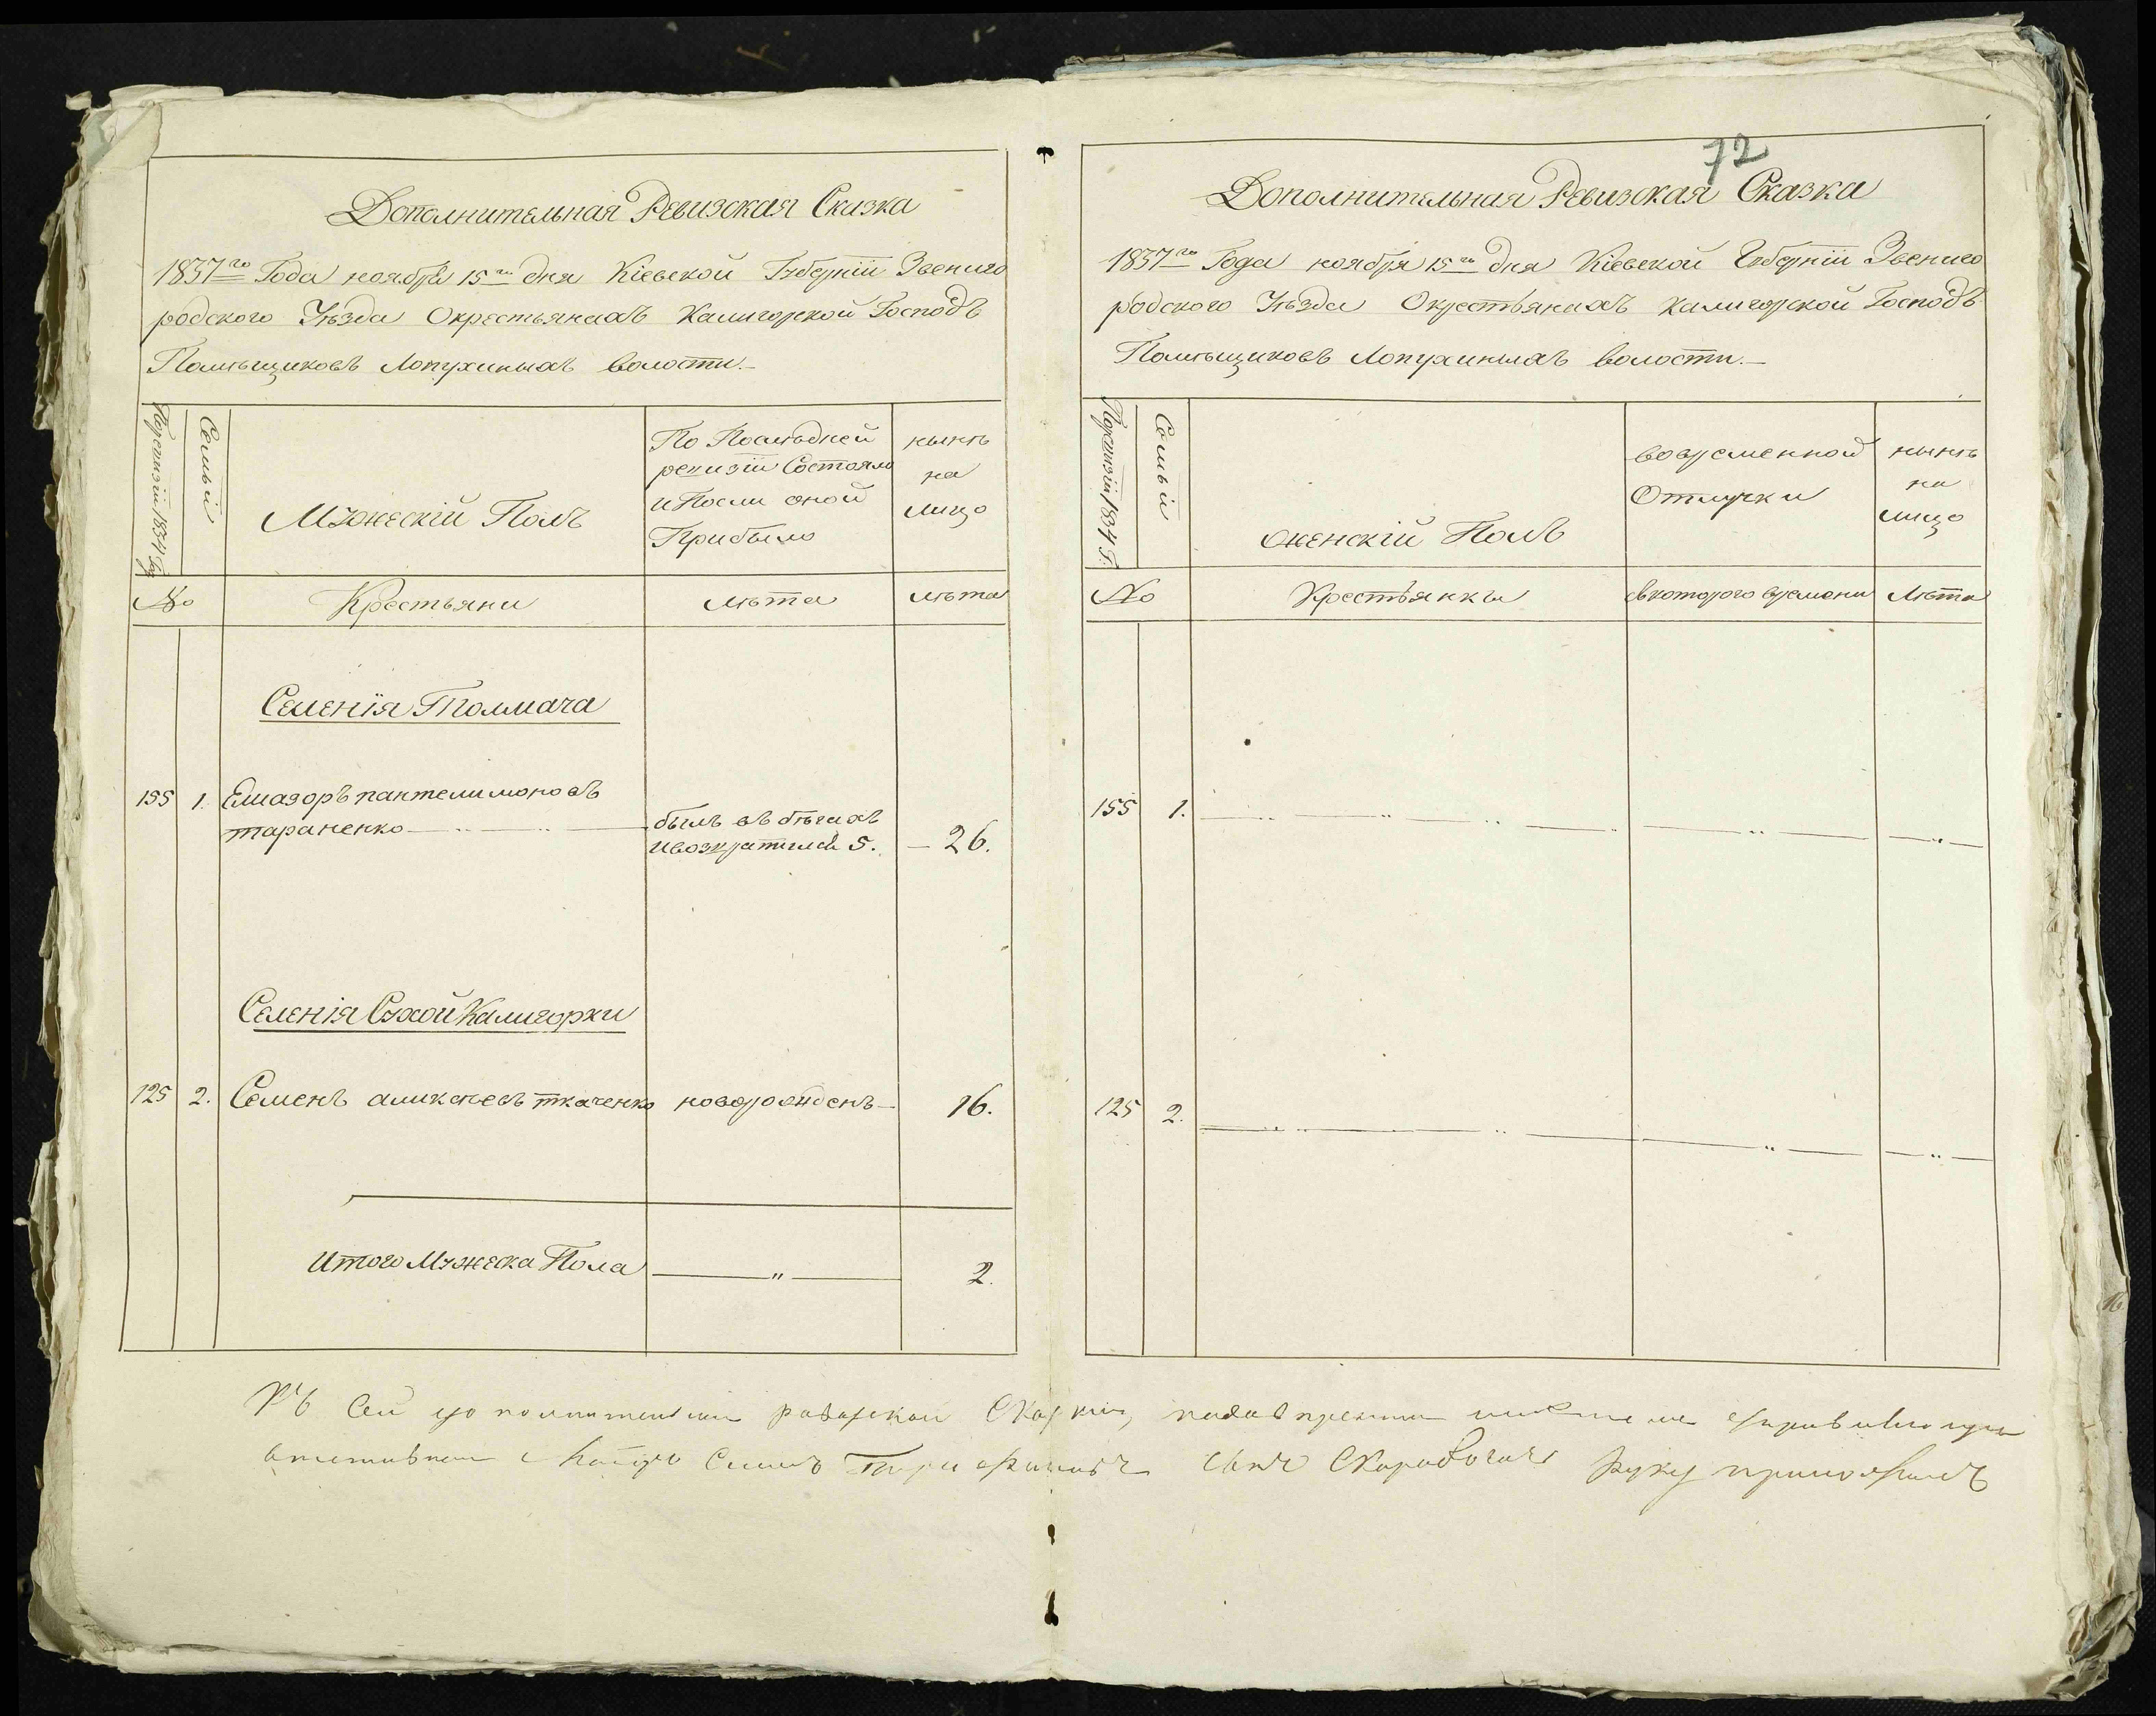 Дополнительная Ревизская Сказка
1837го Года ноября 15го дня Кіевской Губерніи Звениго
родского Уѣзда Окрестьянахъ Калигорской Господъ
Помѣщиковъ Лопухиныхъ волости.
Поревизіи 1834 Год
Семьи
Мужескій Полъ
По Последней
ревизіи Состояло
и После оной
Прибыло
нынѣ
на
лицо
№
Крестьяни
лѣта
лѣта
Селенія Толмача
155 1. Елиазоръ пантелимоновъ
тараненко
былъ въ бѣгахъ
ивозвратился 5. 26.
Селенія Сухой Калигорки
125 2. Семенъ аликсѣевъ ткаченко новорожденъ 16.
Итого Мужеска Пола " 2.
72
Дополнительная Ревизская Сказка
1837го Года ноября 15го дня Кіевской Губерніи Звениго
родского Уѣзда Окрестьянахъ Калигорской Господъ
Помѣщиковъ Лопухиныхъ волости.
Поревизіи 1834 Г:
Семьи
женскій Полъ
вовременной
Отлучки
нынѣ
на
лицо
№
Крестьянки
съкоторого времени
Лѣта
155 1.
125 2.
Къ Сей дополнительной ревизской Сказки,
Семенъ сынъ руку приложилъ
16